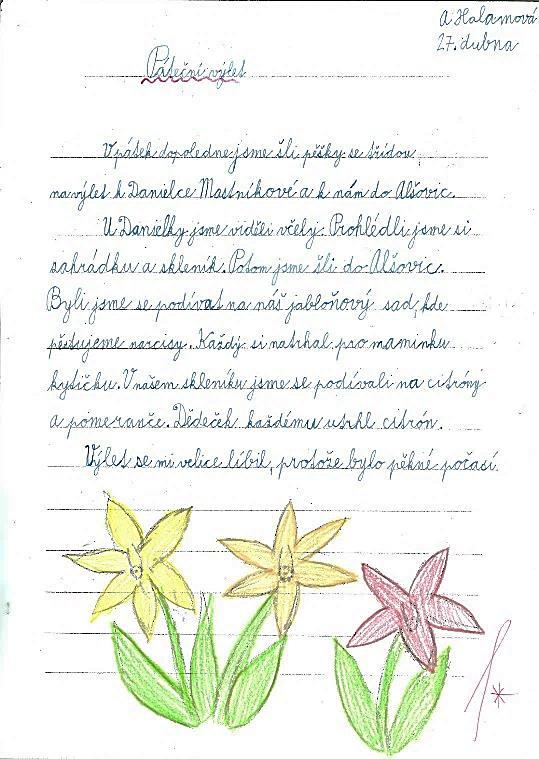 A Halamová
27. dubna
Páteční výlet
V pátek dopoledne jsme šli pěšky se třídou
na výlet k Danielce Mastníkové a k nám do Alšovic.
U Danielky jsme viděli včely. Prohlédli jsme si
zahrádku a skleník. Potom jsme šli do Alšovic.
Byli jsme se podívat na náš jabloňový sad, kde
pěstujeme narcisy. Každý si natrhal pro maminku
kytičku. V našem skleníku jsme se podívali na citróny
a pomeranče. Dědeček každému utrhl citrón.
Výlet se mi velice líbil, protože bylo pěkné počasí.